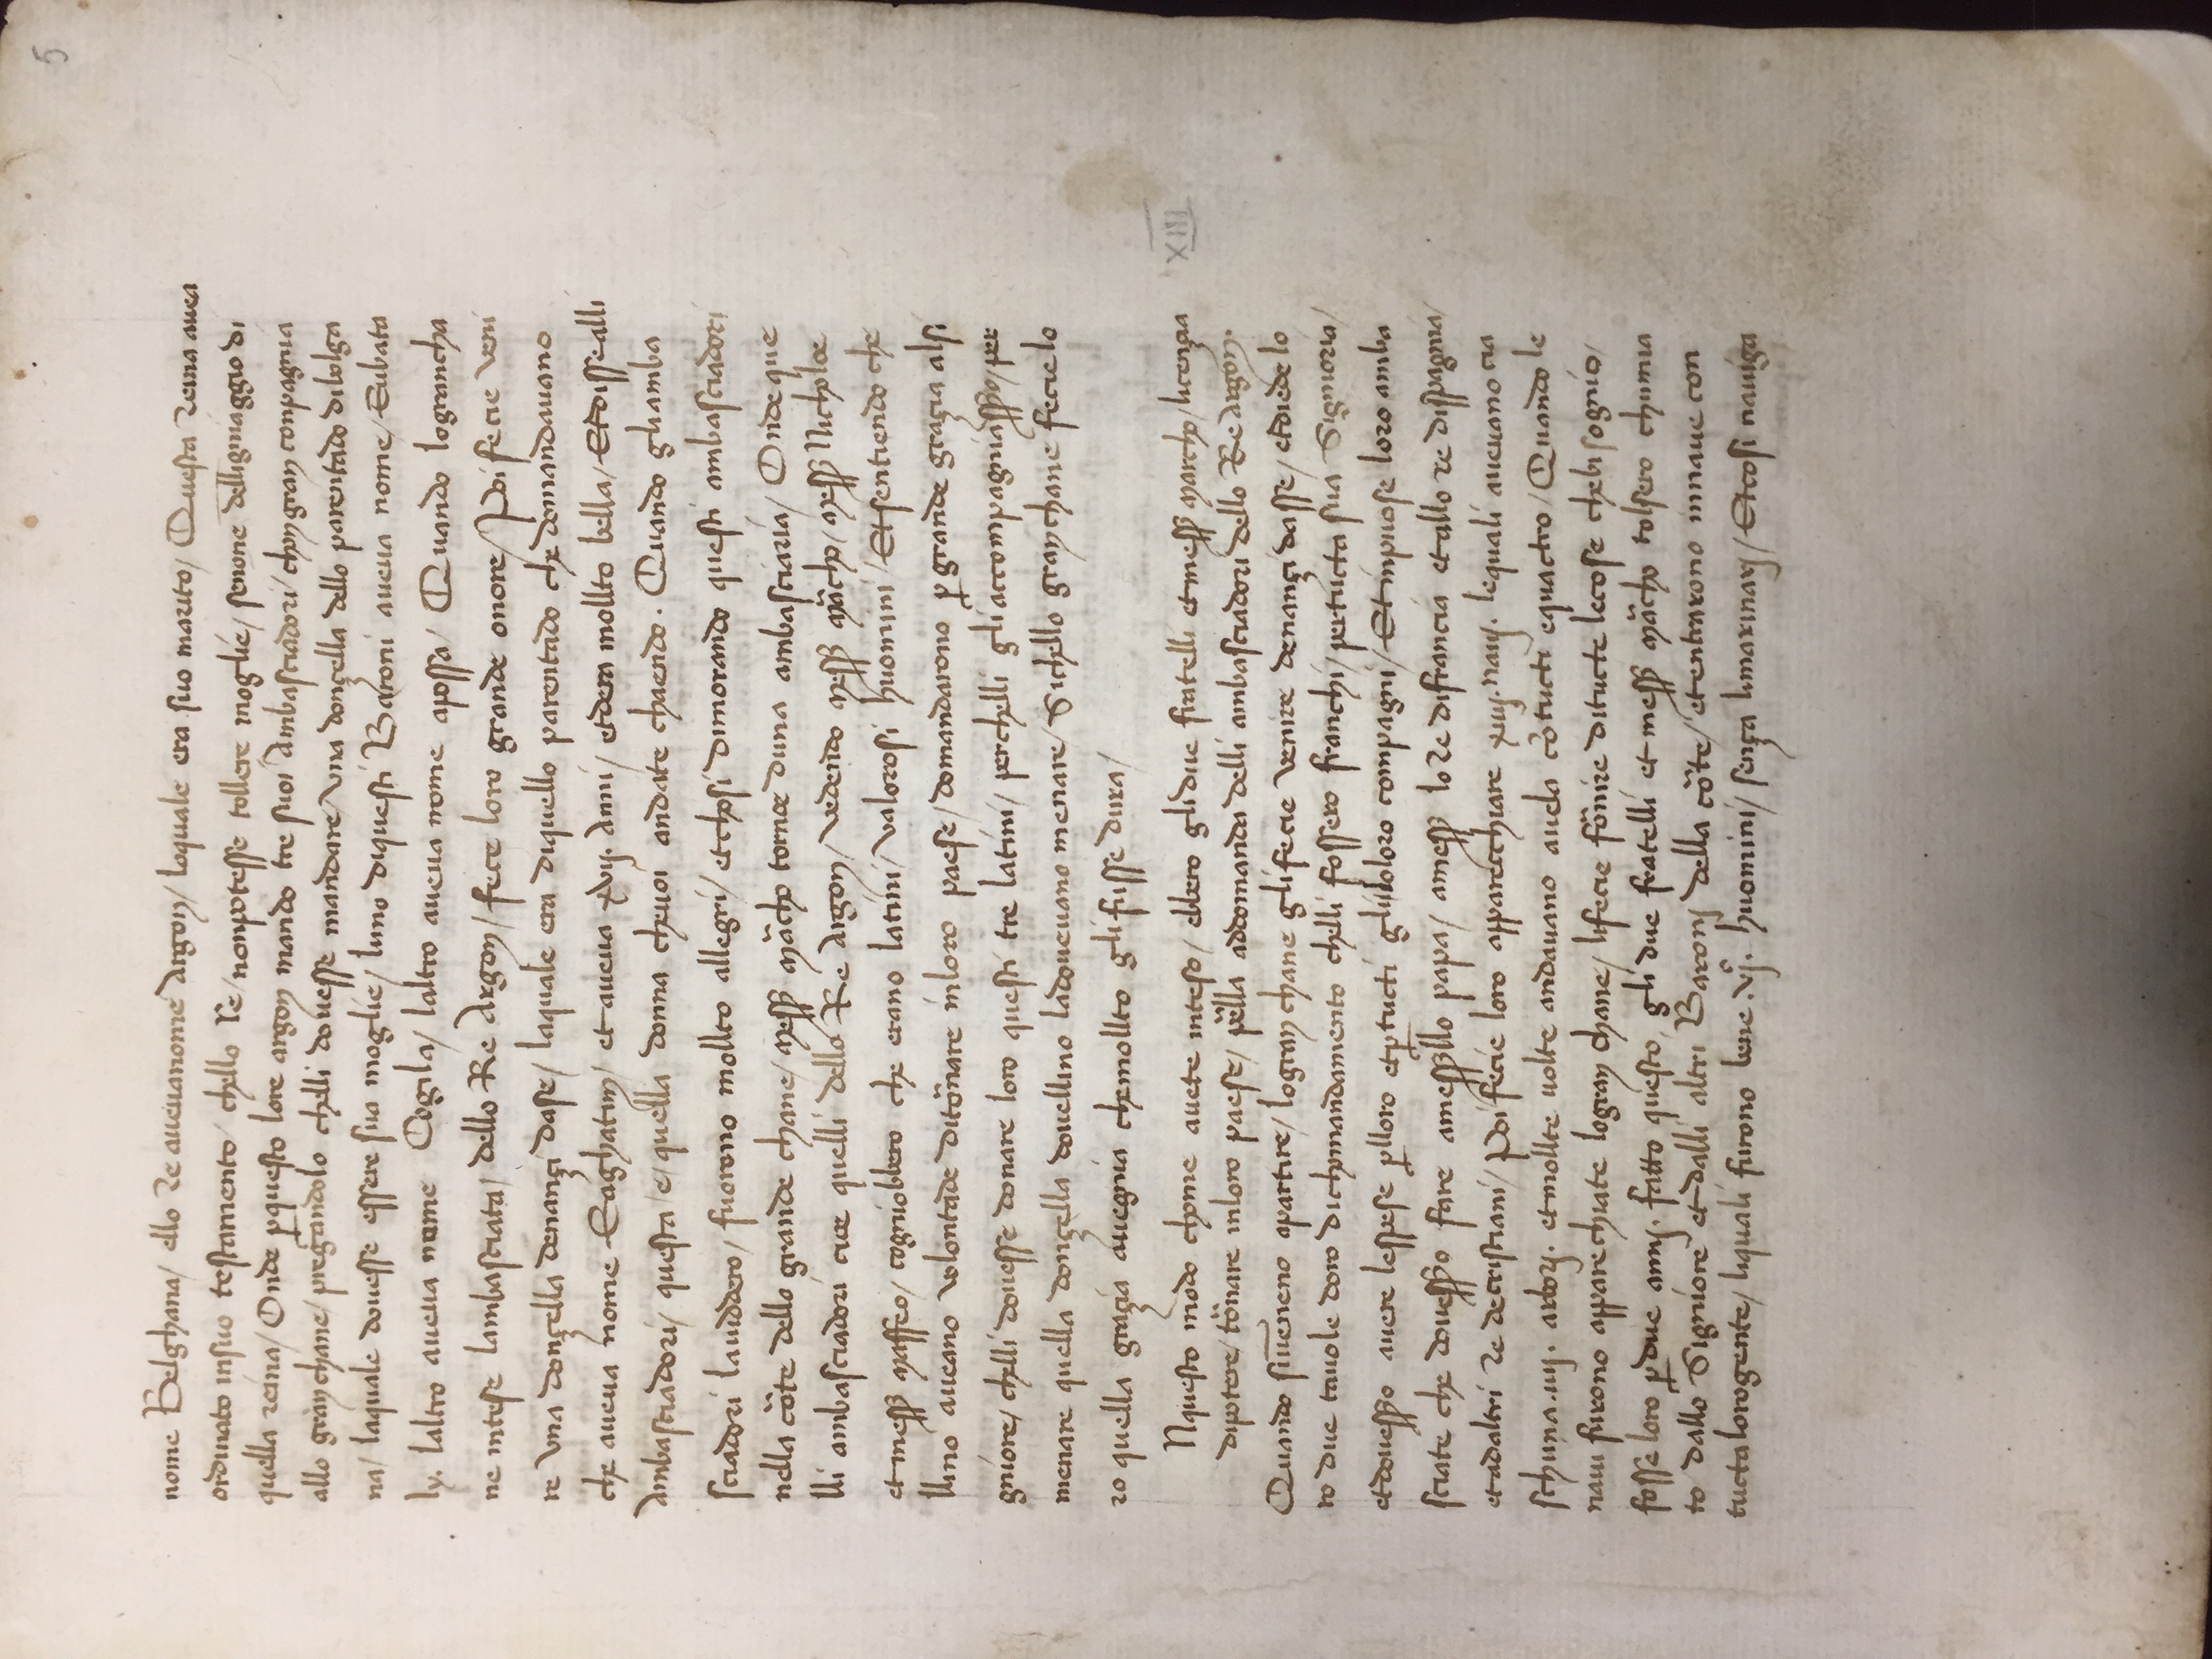 5
nome Belghana/ ello re avevanome Argon/ loquale era suo marito/ Questa reina avea
ordinato insuo testamento/ chello re/ nonpotesse tollere moglie/ senone delligniaggio di
quella reina/ Onde ꝑquesto lore argon mando tre suoi Ambasciadori/ chon gran conpagnia
allo gran chane/ pregandolo chelli dovesse mandare/ una donçella dello parentado dibolga
na/ laquale dovesse essere sua moglie/ luno diquesti Baroni aveva nome/ Eubata
ly. laltro aveva nome Cogila/ laltro aveva nome apossa/ Quando lograncha
ne intese lambasciata/ dello Re Argon/ fece loro grande onore/ Poi fecie veni
re una donçella denançi dase/ laquale era diquello parentado che domandavano
che aveva nome Eaghatin/ et aveva xvij. Anni/ etdera mollto bella/ Etdisse alli
Ambasciadori/ questa/ e/ quella donna chevoi andate chaendo. Quando gliamba
sciadori laviddero/ fuorono mollto allegri/ etchosi dimorando questi ambasciadori
nella cõte dello grande chane/ Messꝑ Mãcho tornoe duna ambasciaria/ Onde que
lli ambasciadori cioe quelli dello Re Argon/ vedendo Messꝑ Mãcho/ Messꝑ Nicholoe
et messꝑ Maffeo/ cogniobbero che erano latini/ valorosi huomini/ Etsentiendo che
llino aveano volontade ditõnare inloro paese/ domandarono ꝑ grande graçia alsi
gniore/ chelli dovesse donare loro questi tre latini/ perchelli gli accompagniasseꝑo/ per
menare quella donçella dovellino ladovevano menare/ Sichello gran chane fecie lo
ro quella graçia avegnia chemollto gli fusse dura/
Nquesto modo chome avete inteso/ ebbero glidue fratelli etmessꝑ Marcho/ licençia
dipotere/ tõnare inloro paese/ pẽlla addomanda delli ambasciadori dello Re Argon.
Quando sivẽneno apartire/ logran chane glifecie venire denançi dasse/ etdiede lo
ro due tavole doro dichomandamento chelli fossero franchi/ pertucta sua Signioria/
etdovessꝑo avere lespese ꝑlloro etꝑtucti gli loloro compagni/ Etinpuose loro amba
sciate che dovessꝑo fare amessꝑllo papa/ amessꝑ lo re difrancia et allo re dispagnia/
etadaltri re decristiani/ Poi fecie loro apparecchiare xiiij. navj. lequali avevano cia
schuna .iiij. arborj. etmollte volte andavano avela cõ tucti equactro/ Quando le
navi furono apparechiate logran chane/ lifecie fõnire ditucte lecose chebisognio/
fosse loro ꝑdue annj. fatto questo, gli due fratelli et messꝑ Mãcho tolsero chumia
to dallo Signiore et dalli altri Baronj della cõte/ etentrarono innave con
tucta lorogente/ liquali furono bene .vjͨ. huomini/ sença limarinarj/ Etcosi naviga
XIII